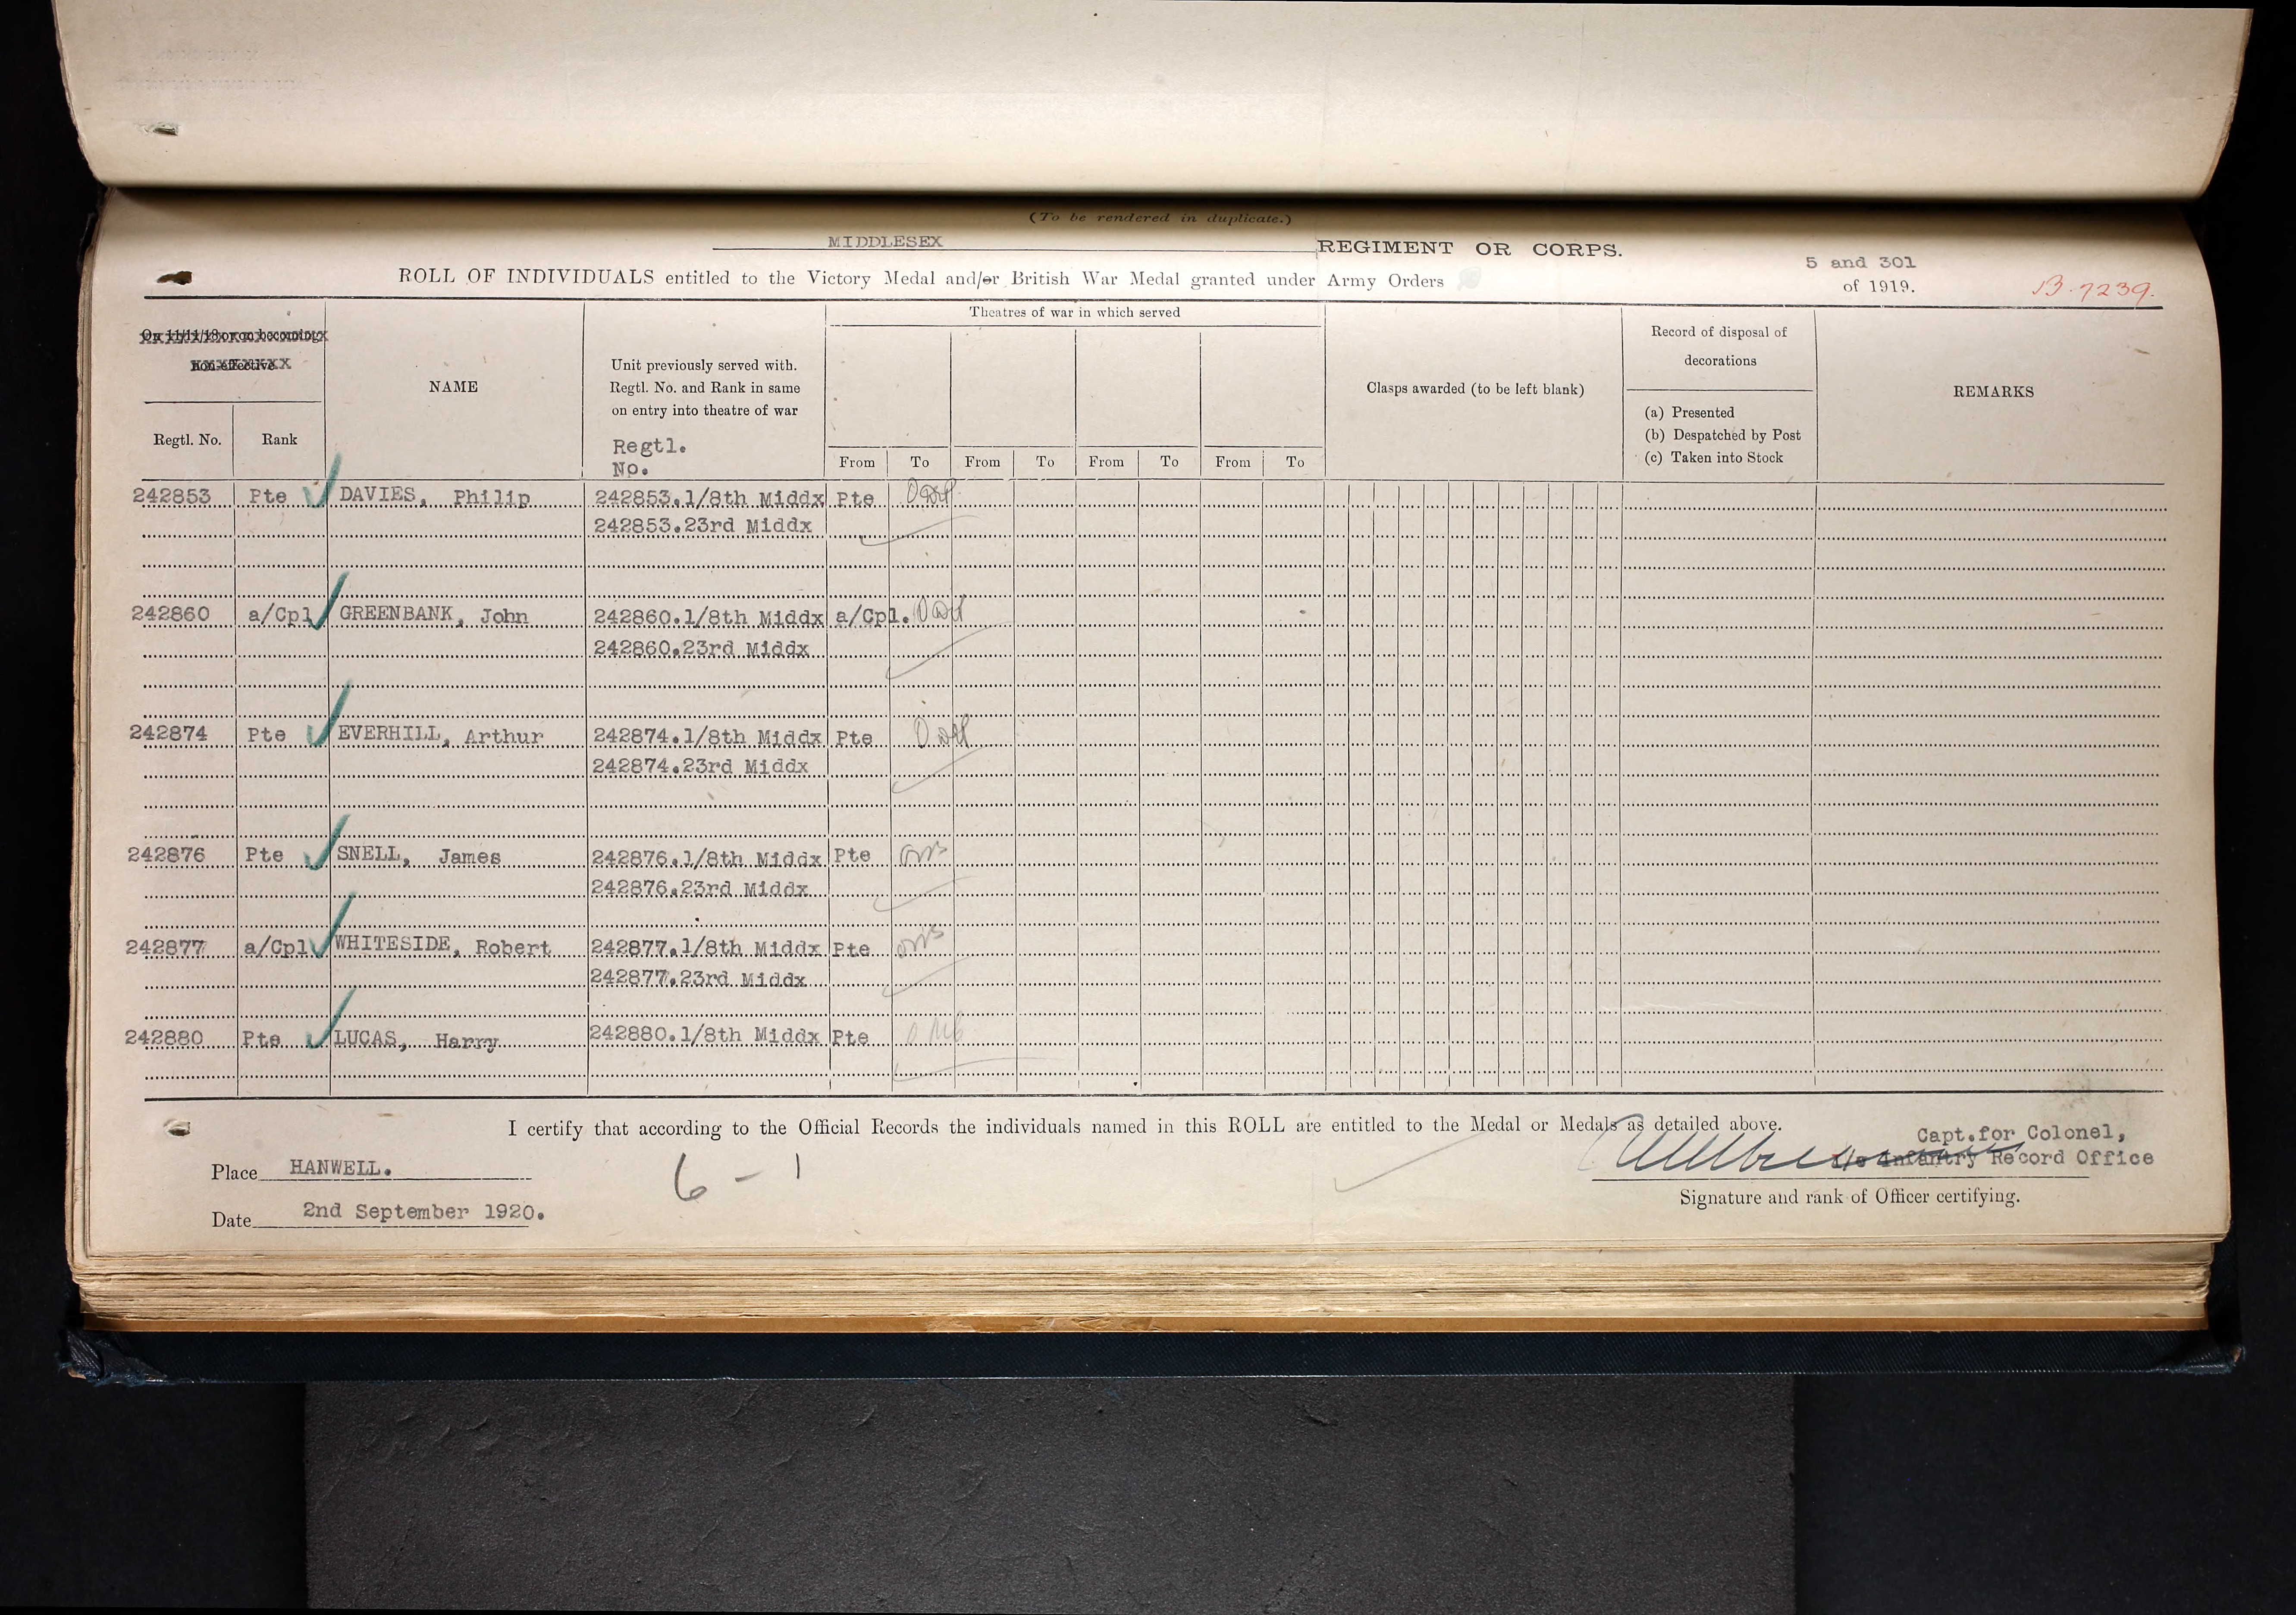 (To be rendered in duplicate.)
MIDDLESEX REGIMENT OR CORPS.
ROLL OF INDIVIDUALS entitled to the Victory Medal and/or British War Medal granted under Army Orders 5 and 301 of 1919.
B.7239.
On 11/11/18 or on becoming
non-effective
Regtl. No.
Rank
NAME
Unit previously served with.
Regtl. No. and Rank in same
on entry into theatre of war
Regtl.
No.
Theatres of war in which served
From To From To From To From To
Clasps awarded (to be left blank)
Record of disposal of
decorations
(a) Presented
(b) Despatched by Post
(c) Taken into Stock
REMARKS
242853 Pte DAVIES, Philip 242853.1/8th Middx Pte
242853.23rd Middx
242860 a/Cpl GREENBANK, John 242860.1/8th Middx a/Cpl.
242860.23rd Middx
242874 Pte EVERHILL, Arthur 242874.1/8th Middx Pte
242874.23rd Middx
242876 Pte SNELL, James 242876.1/8th Middx Pte
242876.23rd Middx
242877 a/Cpl WHITESIDE, Robert 242877.1/8th Middx Pte
242877.23rd Middx
242880 Pte LUCAS, Harry 242880.1/8th Middx Pte
I certify that according to the Official Records the individuals named in this ROLL are entitled to the Medal or Medals as detailed above.
Capt.for Colonel,
i/c Infantry Record Office
Signature and rank of Officer certifying.
Place HANWELL.
6 - 1
Date 2nd September 1920.